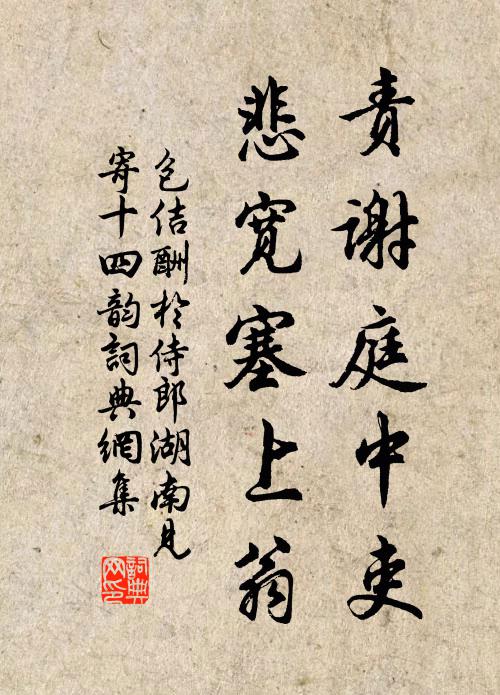 责谢庭中吏
悲宽塞上翁
包佶酬於侍郎湖南见
寄十四韵词典網集
詞典
网印